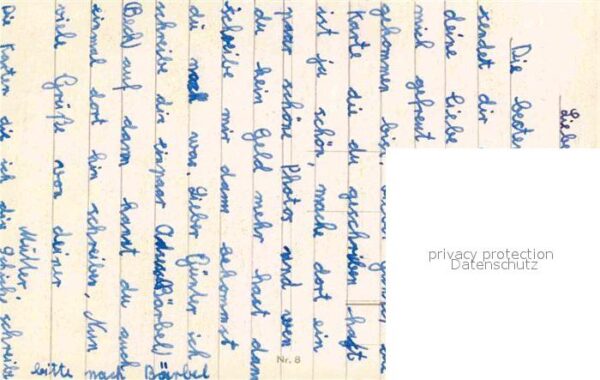 Liebe
Die beste
sendet dir
deine liebe
mich gefreut
gekommen bist
Karte die du geschrieben hast
ist ja schön, mache dort ein
paar schöne Photos und wen
du kein Geld mehr hast dan
schreibe mir dann bekommst
du was. Lieber Günter ich
schreibe dir ein paar Adress Bärbel
Bed auf dann kanst du auch
einmal dort hin schreiben. Nun
viele Grüße von deiner
Mutter
die Karten die ich dir schreibe
bitte nach Bärbel
Nr. 8
privacy protection
Datenschutz